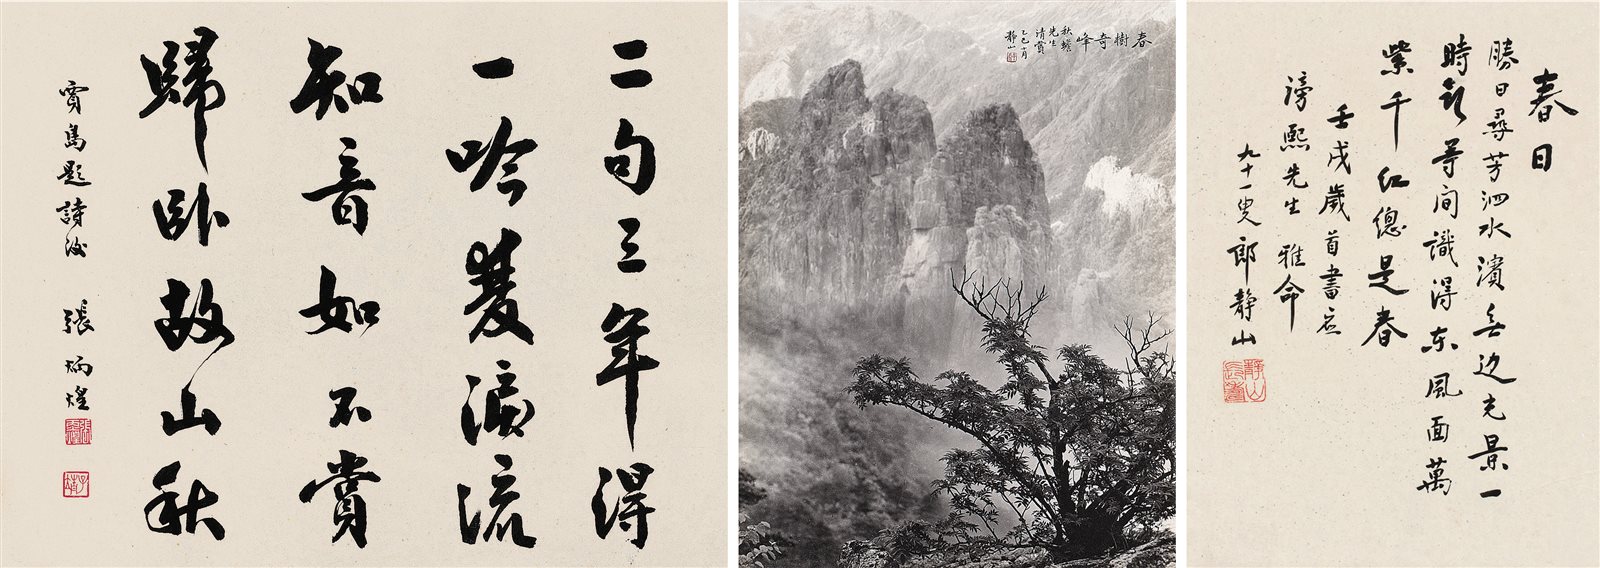 二句三年得
一吟雙淚流
知音如不賞
歸卧故山秋
賈島題詩後 張炳煌
春樹奇峰
先生
清賞
乙巳
靜山
春日
勝日尋芳泗水濱无边光景一
時新等间識得东風面萬
紫千红總是春
壬戌歲首書应
谤熙先生雅命
九十一叟郎靜山
靜山